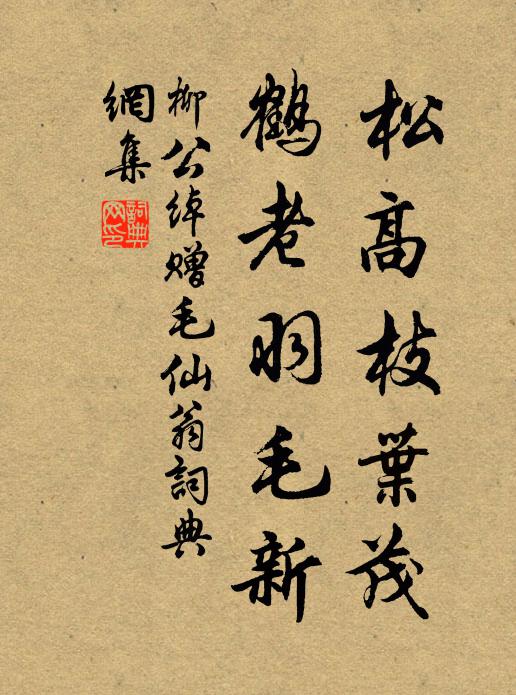 松高枝葉茂
鶴老羽毛新
柳公綽贈毛仙翁詞典
網集
詞典
網印